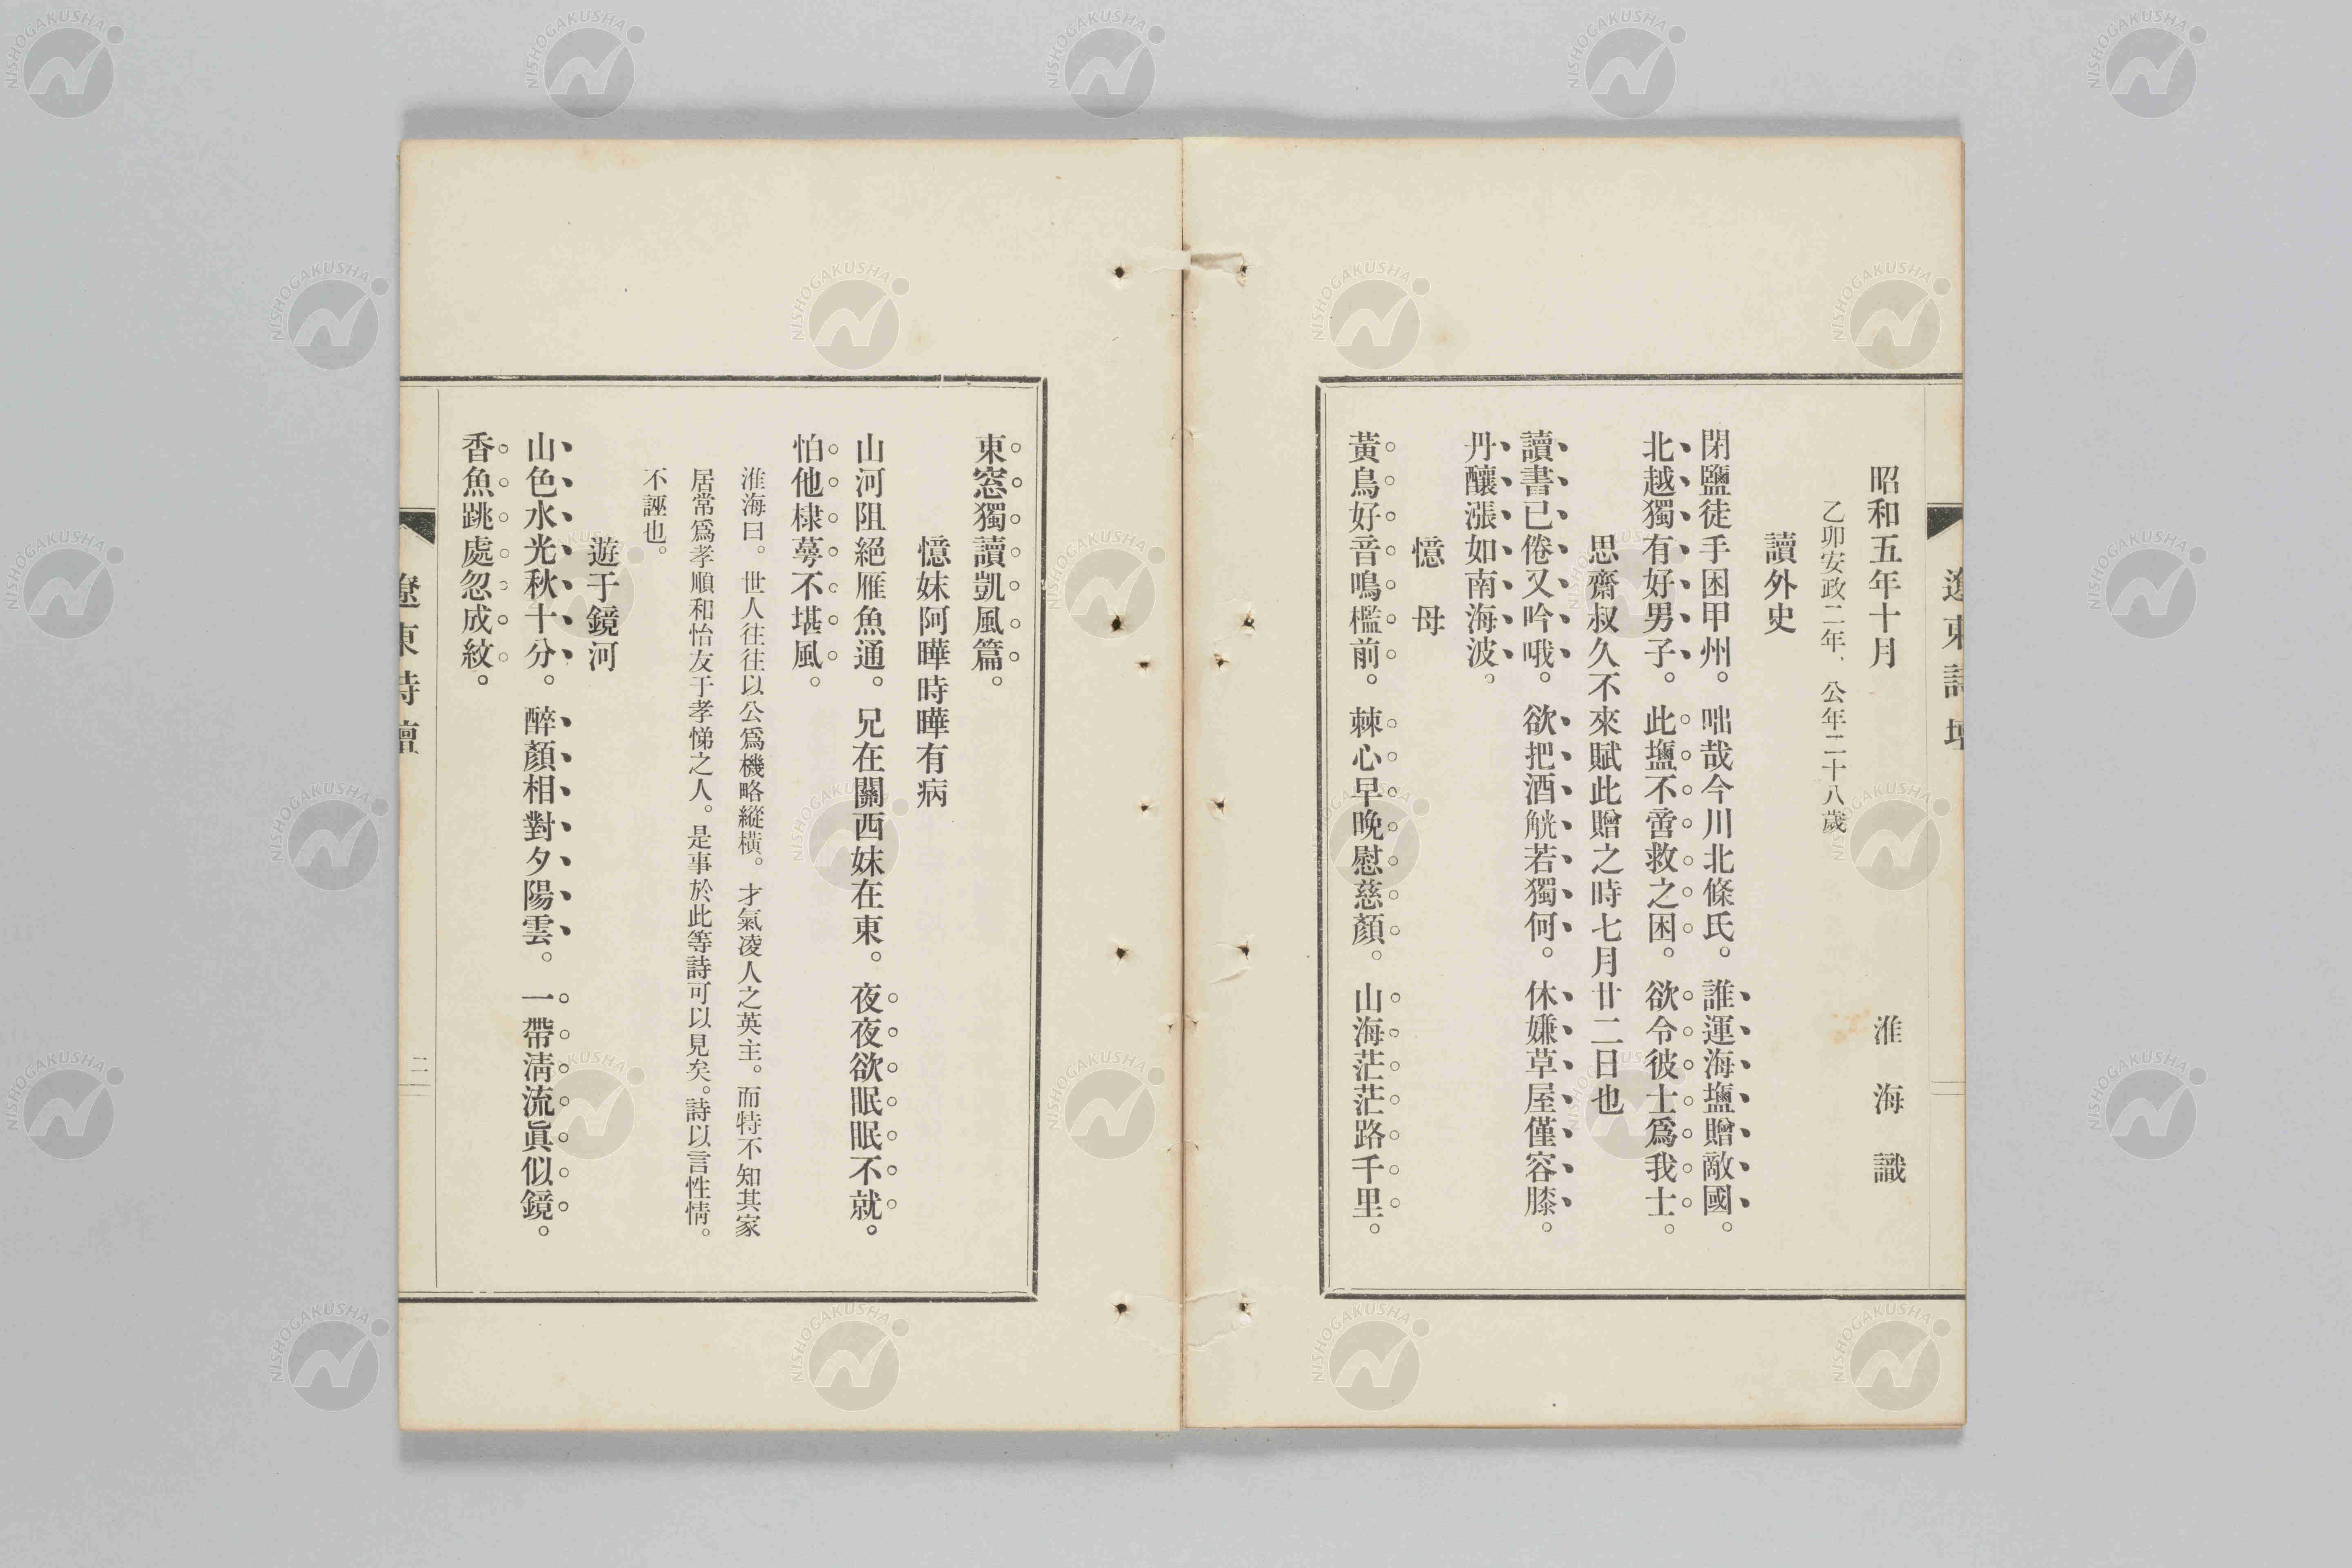 遼東詩壇
昭和五年十月　淮海識
乙卯安政二年、公年二十八歲
讀外史
閉鹽徒手困甲州。咄哉今川北條氏。誰運海鹽贈敵國。
北越獨有好男子。此鹽不啻救之困。欲令彼士爲我士。
思齋叔久不來賦此贈之時七月廿二日也
讀書已倦又吟哦。欲把酒觥若獨何。休嫌草屋僅容膝。
丹釀漲如南海波。
憶母
黃鳥好音鳴檻前。棘心早晚慰慈顏。山海茫茫路千里。
東窓獨讀凱風篇。
憶妹阿曄時曄有病
山河阻絕雁魚通。兄在關西妹在東。夜夜欲眠眠不就。
怕他棣萼不堪風。
淮海曰。世人往往以公爲機略縱橫。才氣凌人之英主。而特不知其家
居常爲孝順和怡友于孝悌之人。是事於此等詩可以見矣。詩以言性情。
不誣也。
遊于鏡河
山色水光秋十分。醉顏相對夕陽雲。一帶淸流眞似鏡。
香魚跳處忽成紋。
遼東詩壇
二
NISHOGAKUSHA